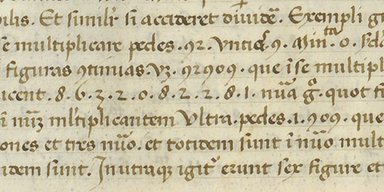 bilis. Et similiter si accideret dividere. Exempli g
se multiplicare pedes. 92. Untie 9. Minuta 0. se
figuras 9tinuas. Uz. 92909. que i se multipl
ucent. 8. 6. 3. 2. 0. 8. 2. 2. 8. 1. nua g quot fi
i nuz mltiplicantem Ultra. pedes. 1. 909. que
ones et tres nuo. et totidem sunt i nuo mult
idem sunt. In utraq igit erunt sex figure et